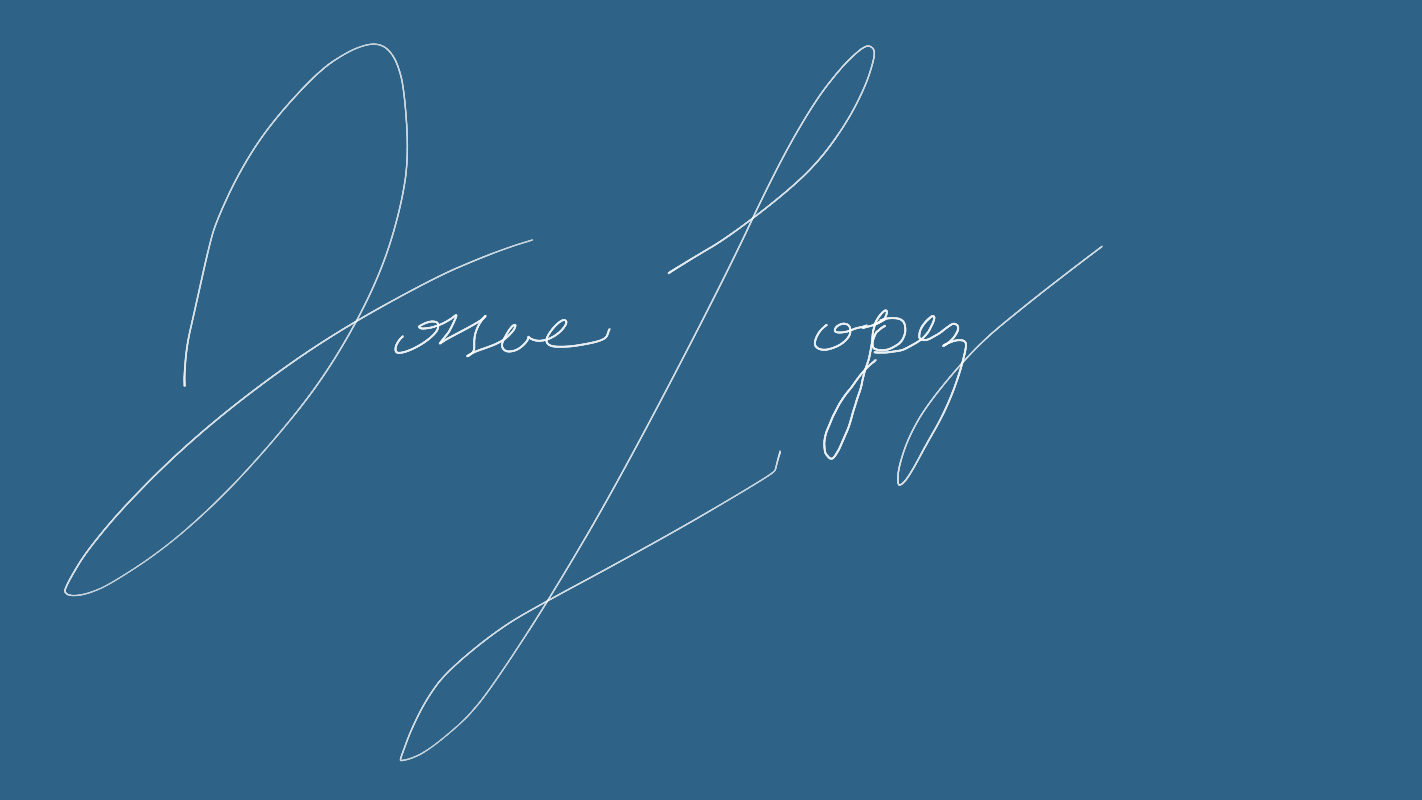 Josue Lopez